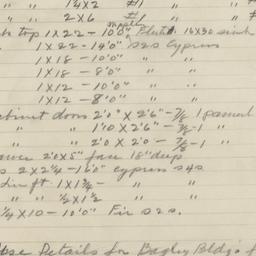 " " 1¼X2 #1 " "
2X6 #1 " "
top 1X22 - 10'0" maple Plate 16X30 sink
1X22 - 14'0" S2S Cypress
1X18 - 10'0" " "
1X18 - 8'0" " "
1X12 - 10'0" " "
1X12 - 8'0" " "
cabinet doors 2'0" X 2'6" - 7/8 1 panel
" " 1'10 X 2'6" - 7/8 - 1 "
" " 2'0 X 2'0 - 7/8 - 1 "
2'0X5" face 18" deep
2X2¼ - 16'0" cypress S4S
lin ft. 1X1¾ - " "
" " ½X1½ " "
¼X10 - 10'0" Fir S2S.
Details for Bagley Bldg's